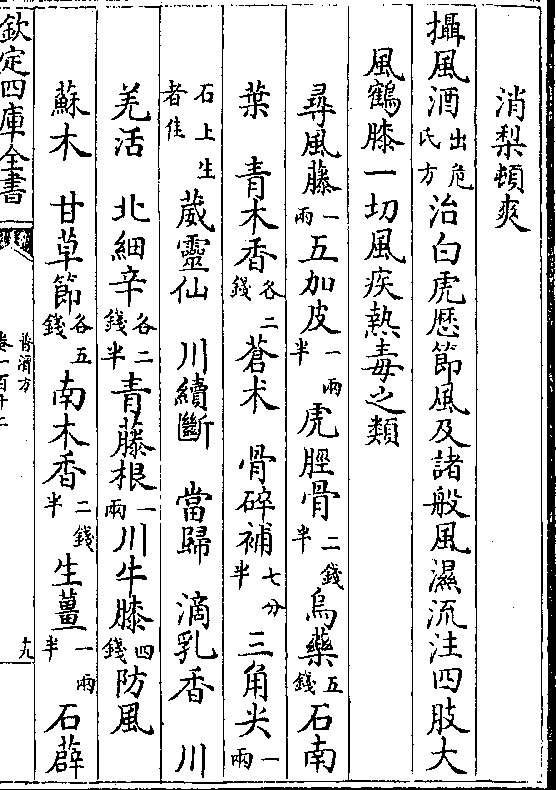 消梨頓爽
攝風酒出危氏方治白虎歴節風及諸般風濕流注四肢大
風鶴膝一切風疾熱毒之類
尋風藤一兩五加皮一兩半虎脛骨二錢半烏藥五錢石南
葉 青木香各二錢蒼术 骨碎補七分半三角尖一兩
石上生者佳葳靈仙 川續斷 當歸 滴乳香 川
羌活 北細辛各二錢半青藤根一兩川牛膝四錢防風
蘇木 甘草節各五錢南木香二錢半生薑一兩半石薜
欽定四庫全書